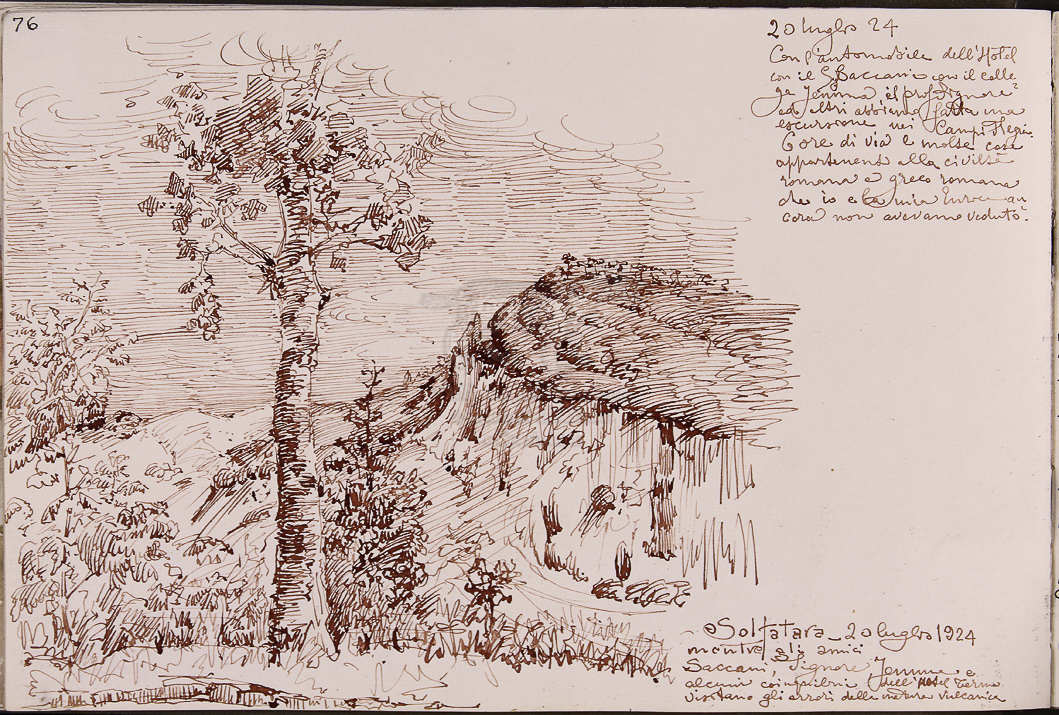 76
20 luglio 24
Con l'automobile dell'Hotel
con il S. Saccani con il colle
ga Jemma il prof Signore
ed altri abbiamo fatta una
escursione nei Campi Flegrei
6 ore di via e molte cose
appartenenti alla civiltà
romana e greco romana
che io e la mia an
cora non avevamo veduto.
Solfatara - 20 luglio 1924
mentre gli amici
Saccani Signore Jemma e
alcuni coinquilini dell'Hotel Terme
visitano gli orrori della natura vulcanica